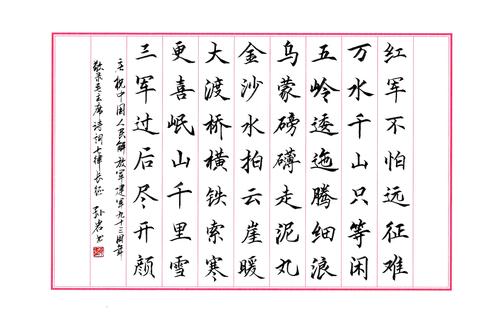 红军不怕远征难
万水千山只等闲
五岭逶迤腾细浪
乌蒙磅礴走泥丸
金沙水拍云崖暖
大渡桥横铁索寒
更喜岷山千里雪
三军过后尽开颜
庆祝中国人民解放军建军九十三周年
敬录毛主席诗词七律长征 孙岩书